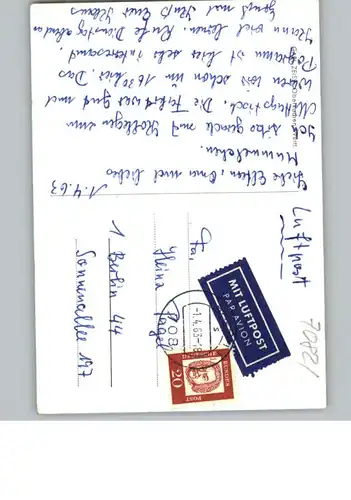 1.4.63
Liebe Eltern, Oma und liebes
Mummelchen.
Ich sitze gerade mit Kollegen zum
Mittagstisch. Die Fahrt war gut und
waren wir schon um 16.30 hier. Das
Programm ist hier sehr interessant.
Kann viel lernen. Rufe Dienstag abend an
Gruß und Kuß Euer Klaus
Luftpost
MIT LUFTPOST
PAR AVION
Fam.
Heinz Pagel
1 Berlin 44
Sonnenallee 197
-1.4.63-18
DEUTSCHE
BUNDESPOST
20